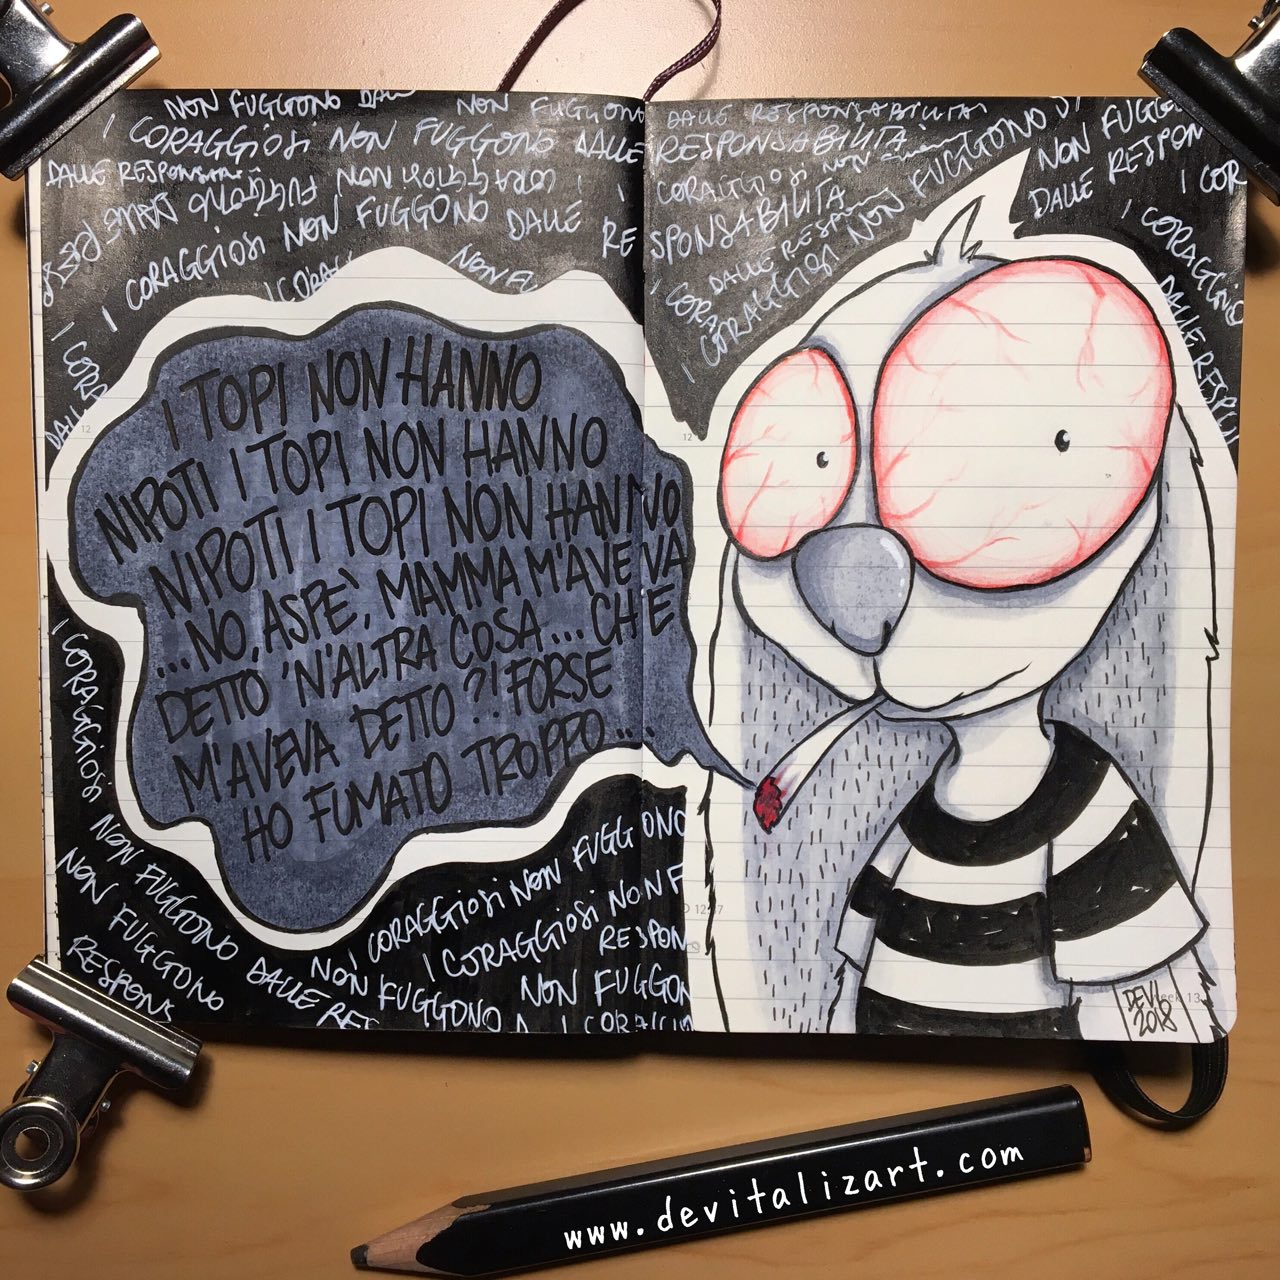 NON FUGGONO DALL
NON FUGGONO
DALLE RESPONSABILITÀ
I CORAGGIOSI NON FUGGONO DALLE
RESPONSABILITÀ
DALLE RESPONSA
I CORAGGIOSI NON FUGGONO
CORAGGIOSI NON
FUGGONO
NON FUGGONO
DALLE RESPON
I CORAGGIOSI NON FUGGONO DALLE RE
SPONSABILITÀ
I COR
I CORAGGIOSI
NON FU
I CORAGGIOSI
DALLE RESPO
I CORAGGIONO
DALLE RESPO
I CORA
DALL
12
12
I TOPI NON HANNO
NIPOTI I TOPI NON HANNO
NIPOTI I TOPI NON HANNO
...NO, ASPE', MAMMA M'AVEVA
DETTO 'N'ALTRA COSA... CHE
M'AVEVA DETTO ?! FORSE
HO FUMATO TROPPO....
I CORAGGIOSI
NON FUGGONO DALLE RES
NON FUGGONO
RESPONS
I CORAGGIOSI NON FUGGONO
I CORAGGIOSI NON F
RESPON
NON FUGGONO
NON FUGGON
I CORAGGI
13
DEVI
2018
www.devitalizart.com